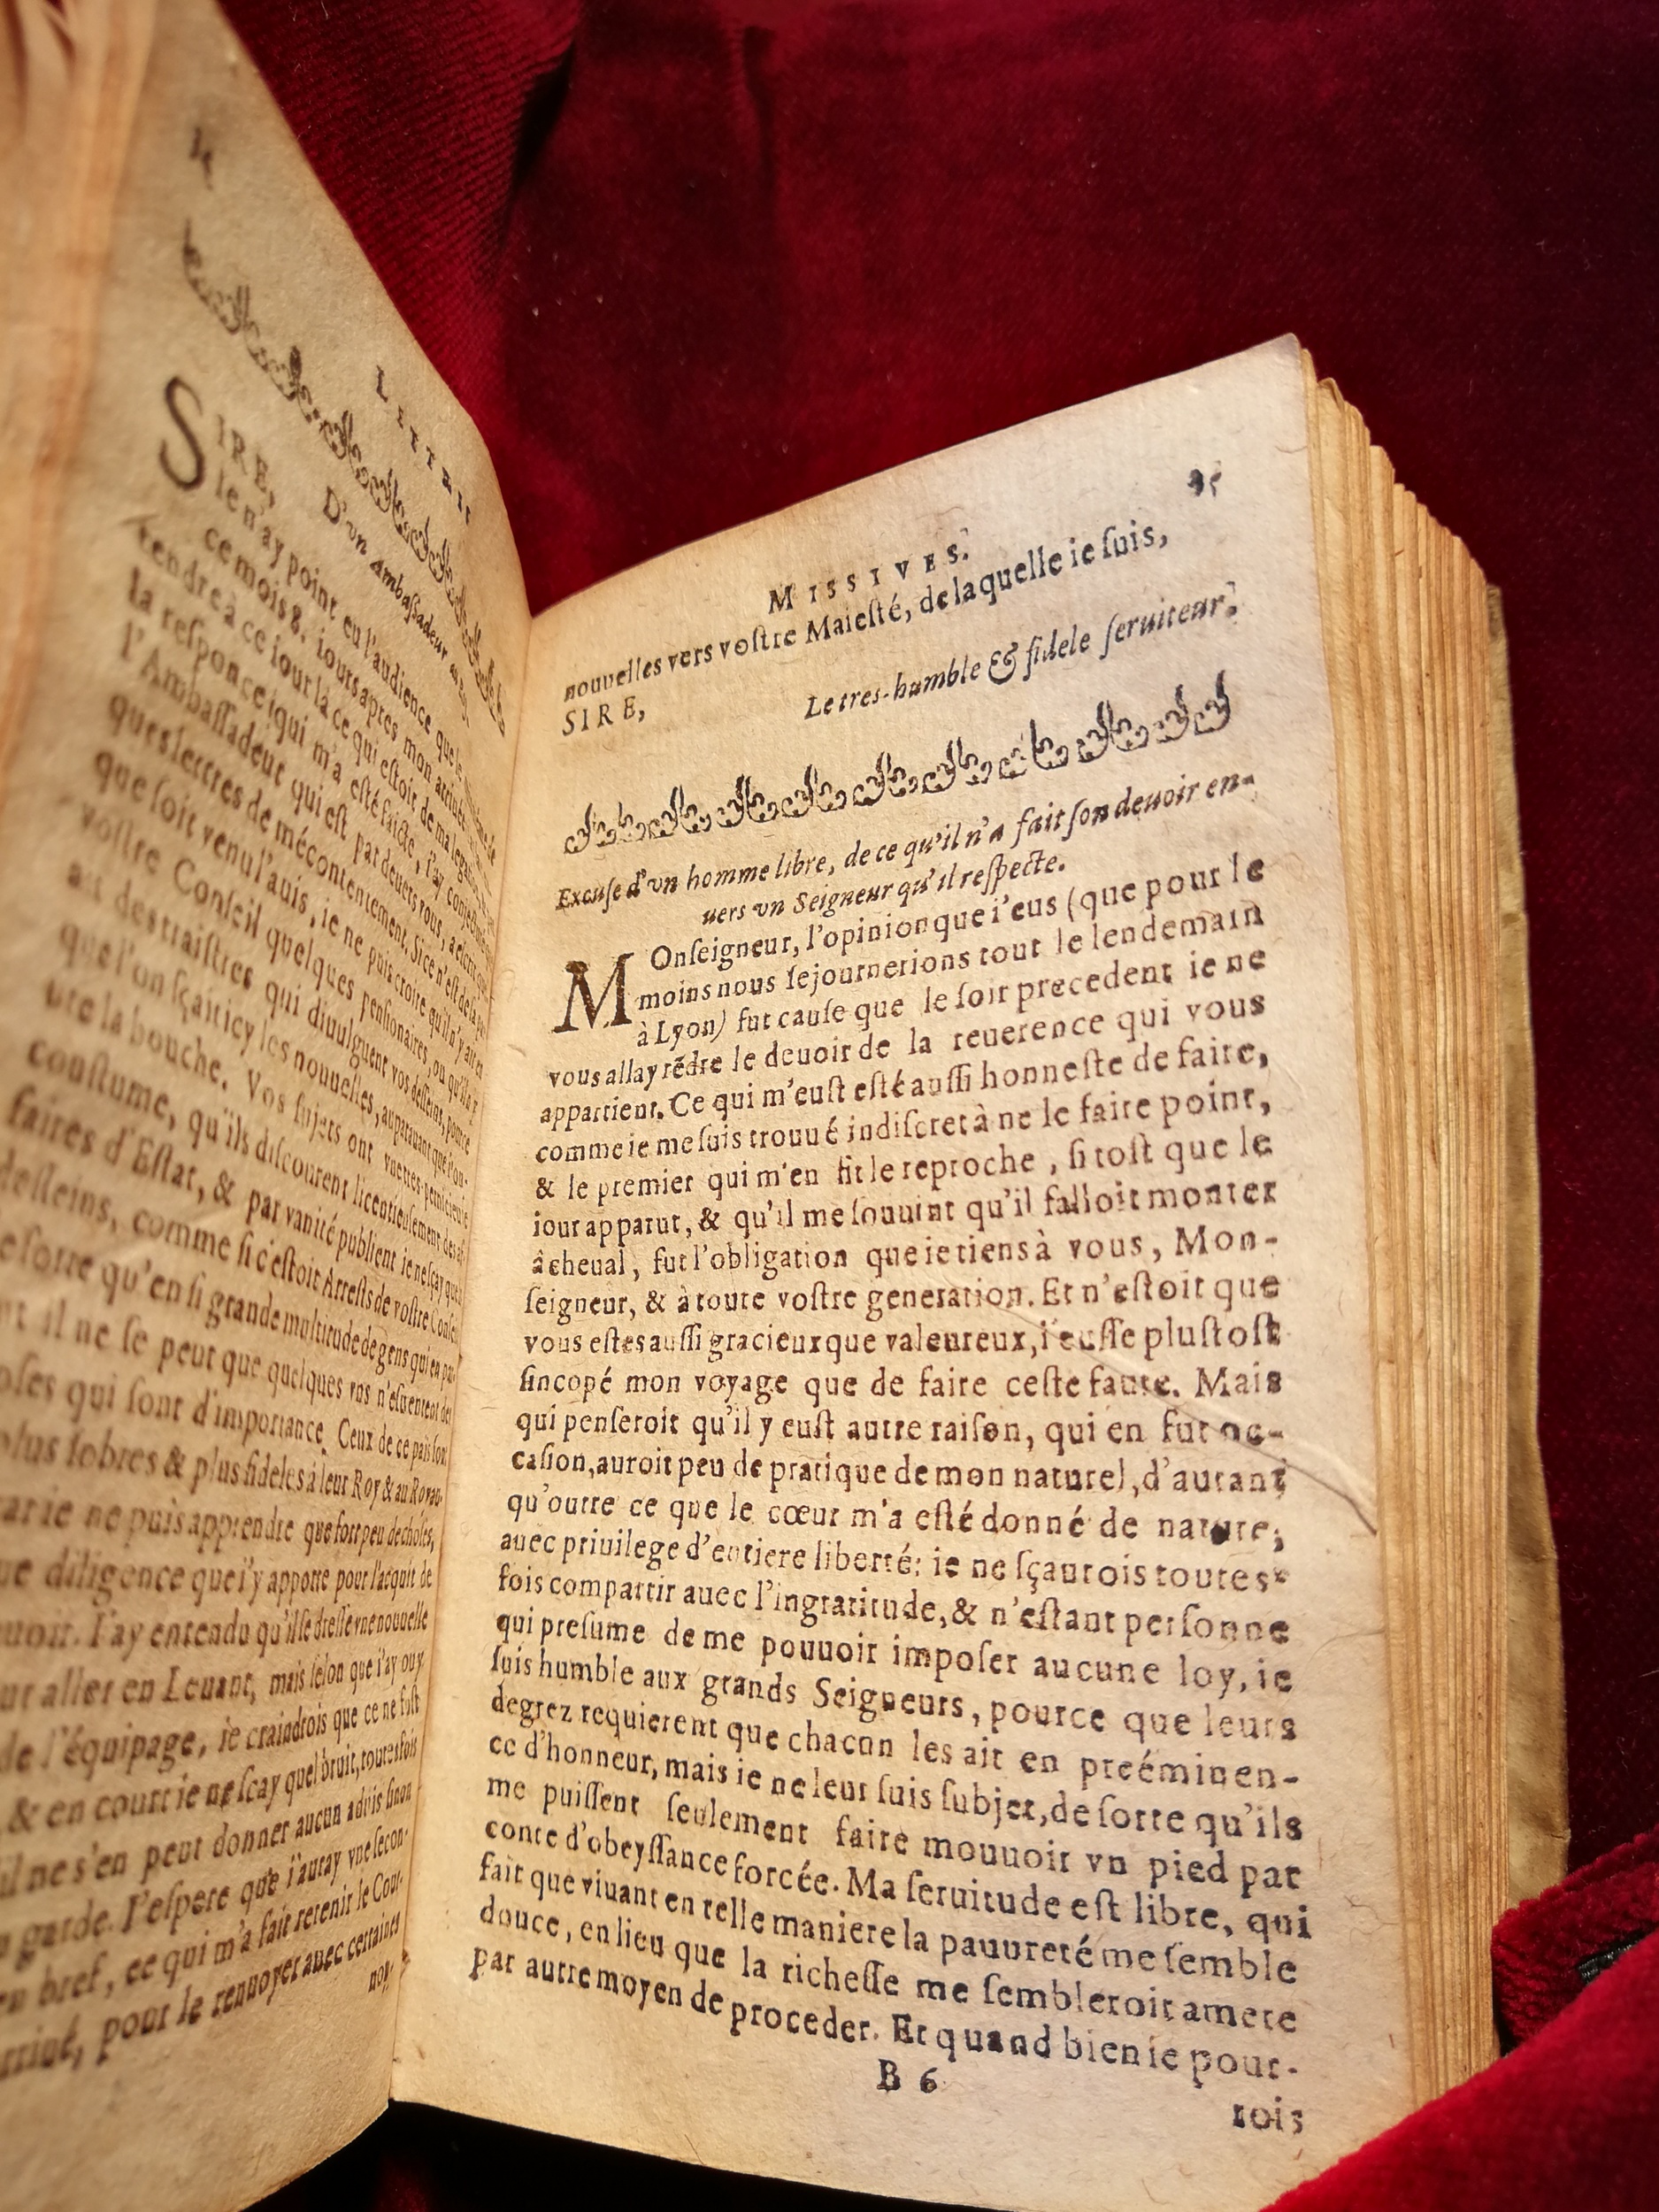 LETTRES
SIRE,
Ie n'ay point eu l'audience que
ce mois 8. iours apres mon arriuée
rendre à ce iour là ce qui estoit de ma legation
la responce (qui m'a esté faicte, i'ay
l'Ambassadeur qui est par deuers vous,
ques lettres de mécontentement. Si ce n'est de la
que soit venu l'auis, ie ne puis croire qu'il n'y ait en
vostre Conseil quelques pensionaires, ou qu'il
ait des traistres qui diuulguent vos desseins, pource
que l'on sçait icy les nouuelles, auparauant que l'on
ure la bouche. Vos sujets ont
coustume, qu'ils discourent licentieusement des af-
faires d'Estat, & par vanité publient ie ne sçay quels
desseins, comme si c'estoit Arrests de vostre Conseil
e sorte qu'en si grande multitude de gens qui en
il ne se peut que quelques vns n'esuentent
oses qui sont d'importance. Ceux de ce pais sont
plus sobres & plus fideles à leur Roy & au Royau-
ar ie ne puis apprendre que fort peu de choses,
ue diligence que i'y apporte pour l'acquit de
uoir. I'ay entendu qu'il se dresse vne nouuelle
ur aller en Leuant, mais selon que i'ay ouy
de l'équipage, ie craindrois que ce ne fust
& en court ie ne sçay quel bruit, toutesfois
il ne s'en peut donner aucun aduis sinon
garde. I'espere que i'auray vne secon-
en bref, ce qui m'a fait retenir le Cou-
rriué, pour le renuoyer auec certaines
nou-
MISSIVES.
nouuelles vers vostre Maiesté, de laquelle ie suis,
SIRE,
Le tres-humble & fidele seruiteur.
Excuse d'vn homme libre, de ce qu'il n'a fait son deuoir en-
uers vn Seigneur qu'il respecte.
MOnseigneur, l'opinion que i'eus (que pour le
moins nous sejournerions tout le lendemain
à Lyon) fut cause que le soir precedent ie ne
vous allay rẽdre le deuoir de la reuerence qui vous
appartient. Ce qui m'eust esté aussi honneste de faire,
comme ie me suis trouué indiscret à ne le faire point,
& le premier qui m'en fit le reproche, si tost que le
iour apparut, & qu'il me souuint qu'il falloit monter
à cheual, fut l'obligation que ie tiens à vous, Mon-
seigneur, & à toute vostre generation. Et n'estoit que
vous estes aussi gracieux que valeureux, i'eusse plustost
sincopé mon voyage que de faire ceste faute. Mais
qui penseroit qu'il y eust autre raison, qui en fut oc-
casion, auroit peu de pratique de mon naturel, d'autant
qu'outre ce que le cœur m'a esté donné de nature,
auec priuilege d'entiere liberté: ie ne sçaurois toutes-
fois compartir auec l'ingratitude, & n'estant personne
qui presume de me pouuoir imposer aucune loy, ie
suis humble aux grands Seigneurs, pource que leurs
degrez requierent que chacun les ait en preéminen-
ce d'honneur, mais ie ne leur suis subjet, de sorte qu'ils
me puissent seulement faire mouuoir vn pied par
conte d'obeyssance forcée. Ma seruitude est libre, qui
fait que viuant en telle maniere la pauureté me semble
douce, en lieu que la richesse me sembleroit amere
par autre moyen de proceder. Et quand bien ie pour-
B 6
rois